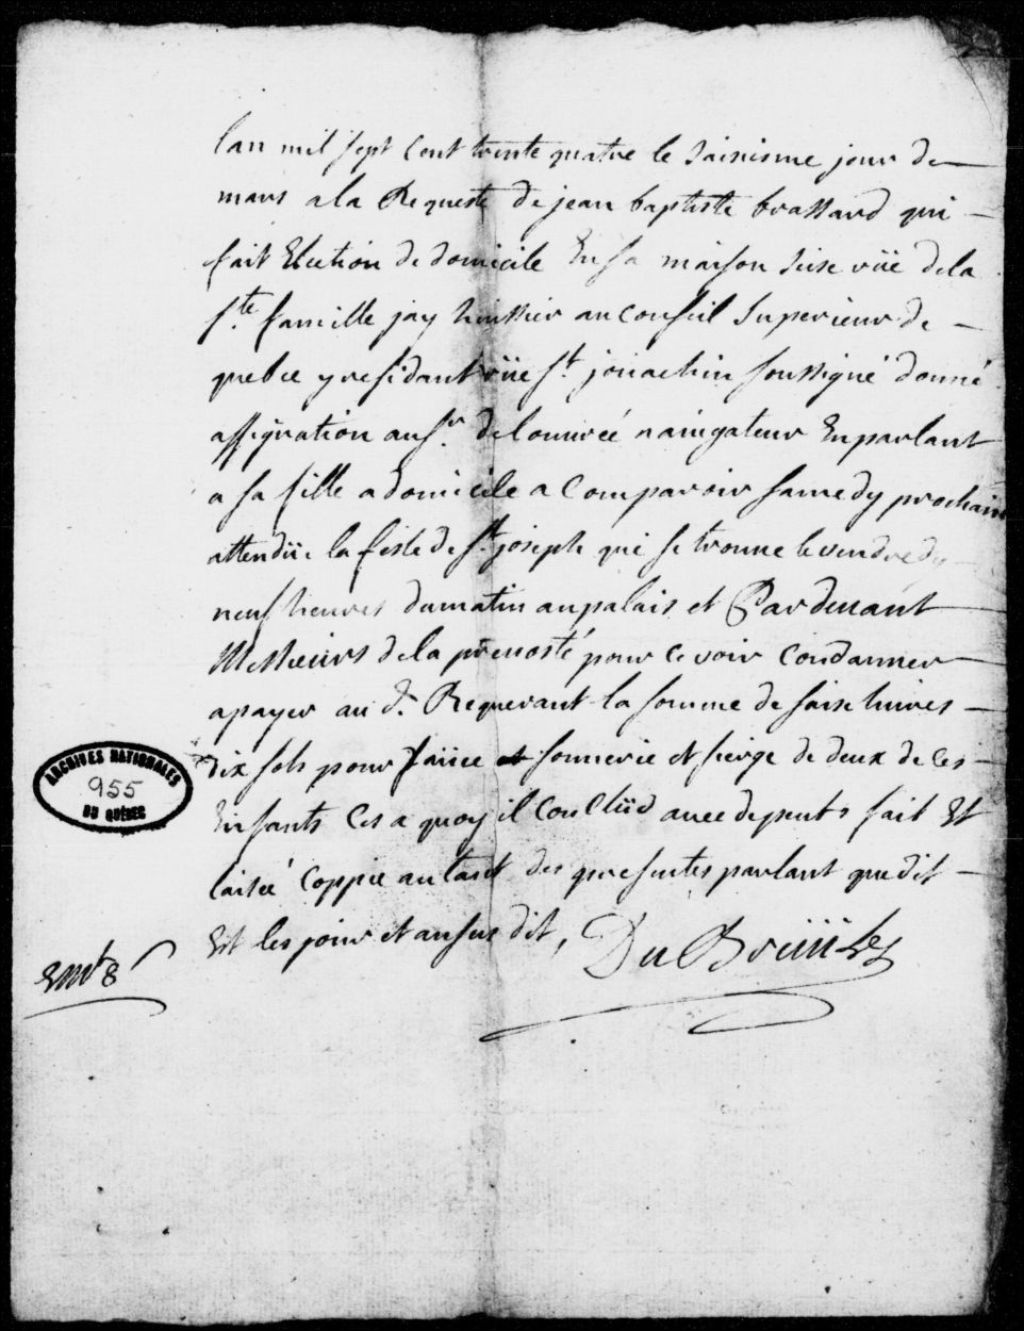 lan mil sept cent trente quatre le saisisme jour de
mars a la Requeste de jean baptiste brassard qui
fait Election de domicile En sa maison sise rüe de la
ste famille jay huissier au conseil superieur de
quebec y residant rüe st joüachin soussigné donné
assignation au sr. delouvrée navigateur En parlant
a sa fille a domicile a comparoir samedy prochain
attendüe la feste de st joseph qui se trouve le vendredy
neuf heures du matin au palais et Pardevant
Messieurs de la prevosté pour ce voir condamner
a payer au d. Requerant la somme de saise livres
dix sols pour et sonnerie et sierge de deux de ces
Enfants Ces a quoy il conclüd avec depents fait Et
laissé coppie autant des presentes parlant que dit
Est les jour et an sus dit, DuBreüil
ARCHIVES NATIONALES
955
DU QUÉBEC